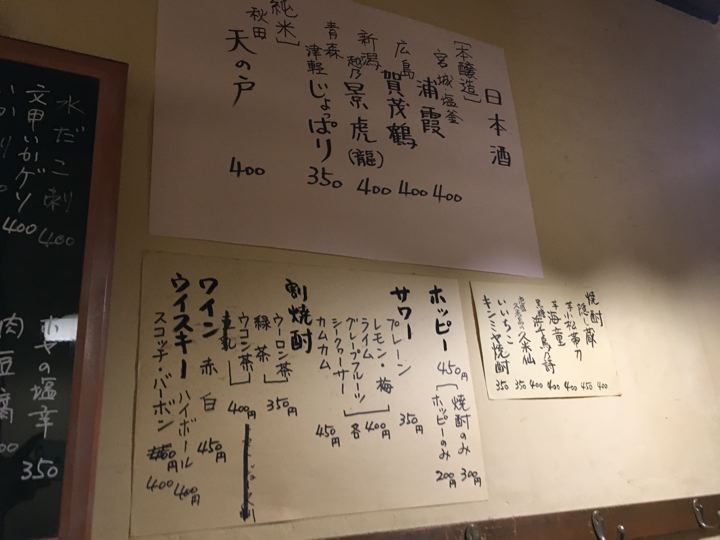 日本酒
[本醸造]
宮城・塩釜
浦霞 400
広島
賀茂鶴 400
新潟
越乃景虎(龍) 400
青森
津軽じょっぱり 350
[純米]
秋田
天の戸 400
焼酎
隠し蔵 400
芋 小松帯刀 450
芋 海童 400
400
久米仙 400
いいちこ 350
キンミヤ焼酎 350
ホッピー 450円
焼酎のみ 300円
ホッピーのみ 200円
サワー
プレーン 350円
レモン・梅
ライム
グレープフルーツ
シークヮーサー
各400円
カムカム 450円
割焼酎
ウーロン茶 350円
緑茶
ウコン茶
400円
ワイン 赤 白 450円
ウイスキー ハイボール 400円
スコッチ・バーボン 400
水だこ刺 400
文甲いかゲソ 400
の塩辛 350
肉豆腐